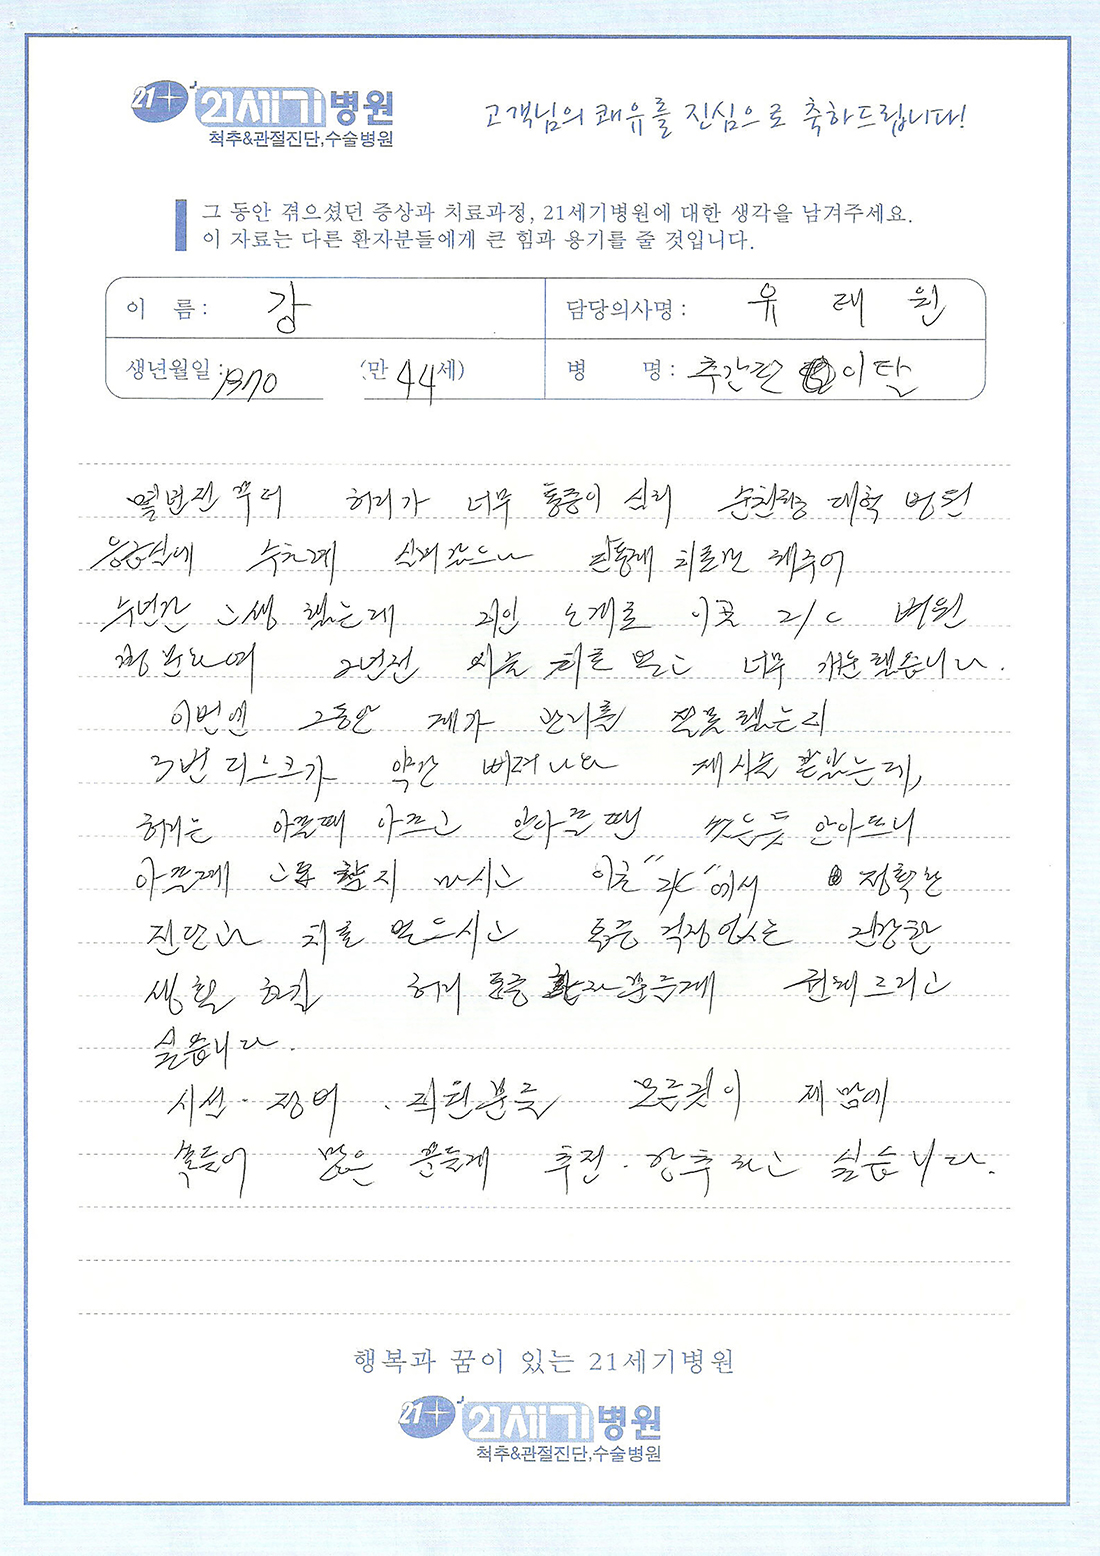 21+ 21세기병원
척추&관절진단,수술병원
고객님의 쾌유를 진심으로 축하드립니다!
그 동안 겪으셨던 증상과 치료과정, 21세기병원에 대한 생각을 남겨주세요.
이 자료는 다른 환자분들에게 큰 힘과 용기를 줄 것입니다.
이 름 : 강
담당의사명 : 유 태 원
생년월일 : 1970 (만 44 세)
병 명 : 추간판 이탈
몇년전 부터 허리가 너무 통증이 심해 순천향 대학 병원
응급실에 수차례 실려갔으나 진통제 치료만 해주어
수년간 고생 했는데 지인 소개로 이곳 21C 병원
방문하여 2년전 시술 치료 받고 너무 개운했습니다.
이번엔 그동안 제가 관리를 잘못했는지
3번 디스크가 약간 삐져나와 재시술 받았는데,
허리는 아플때 아프고 안아플땐 씻은듯 안아프니
아플때 그릇 참지 마시고 이곳 "21C"에서 정확한
진단과 치료 받으시고 통증 걱정없는 건강한
생활 하길 허리 통증 환자분들께 권해드리고
싶습니다.
시설. 장비. 직원분들 모든것이 제 맘에
쏙들어 많은 분들께 추천. 강추 하고 싶습니다.
행복과 꿈이 있는 21세기병원
21+ 21세기병원
척추&관절진단,수술병원